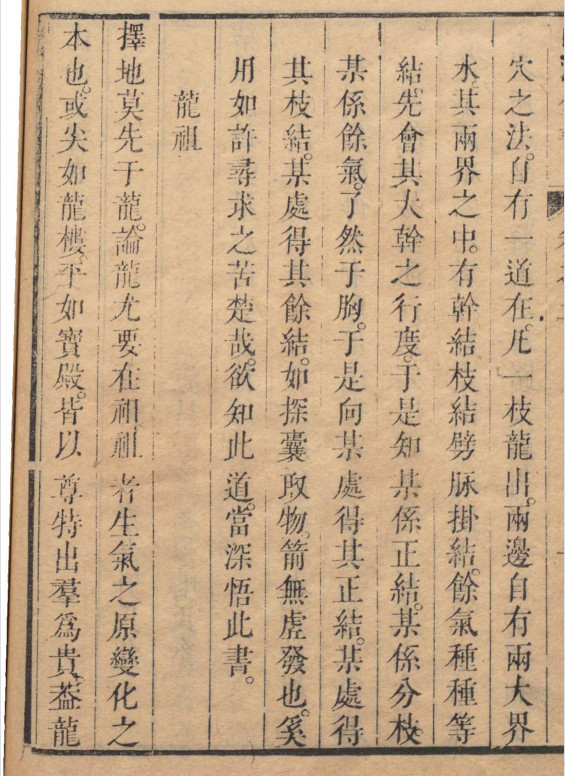 穴之法。自有一道在。凡一枝龍出。兩邊自有兩大界
水。其兩界之中。有幹結枝結劈脉掛結。餘氣種種等
結。先會其大幹之行度。于是知某係正結。某係分枝。
某係餘氣。了然于胸。于是向某處得其正結。某處得
其枝結。某處得其餘結。如探囊取物。箭無虛發也。奚
用如許尋求之苦楚哉。欲知此道。當深悟此書。
龍祖
擇地莫先于龍。論龍尤要在祖。祖者生氣之原。變化之
本也。或尖如龍樓。平如寶殿。皆以尊特出羣爲貴。葢龍